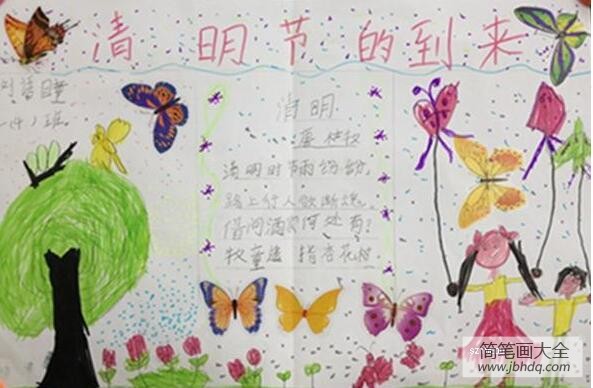 清明节的到来
一(4)班
清明
唐 杜牧
清明时节雨纷纷,
路上行人欲断魂。
借问酒家何处有?
牧童遥指杏花村
简笔画大全
www.jbhdq.com